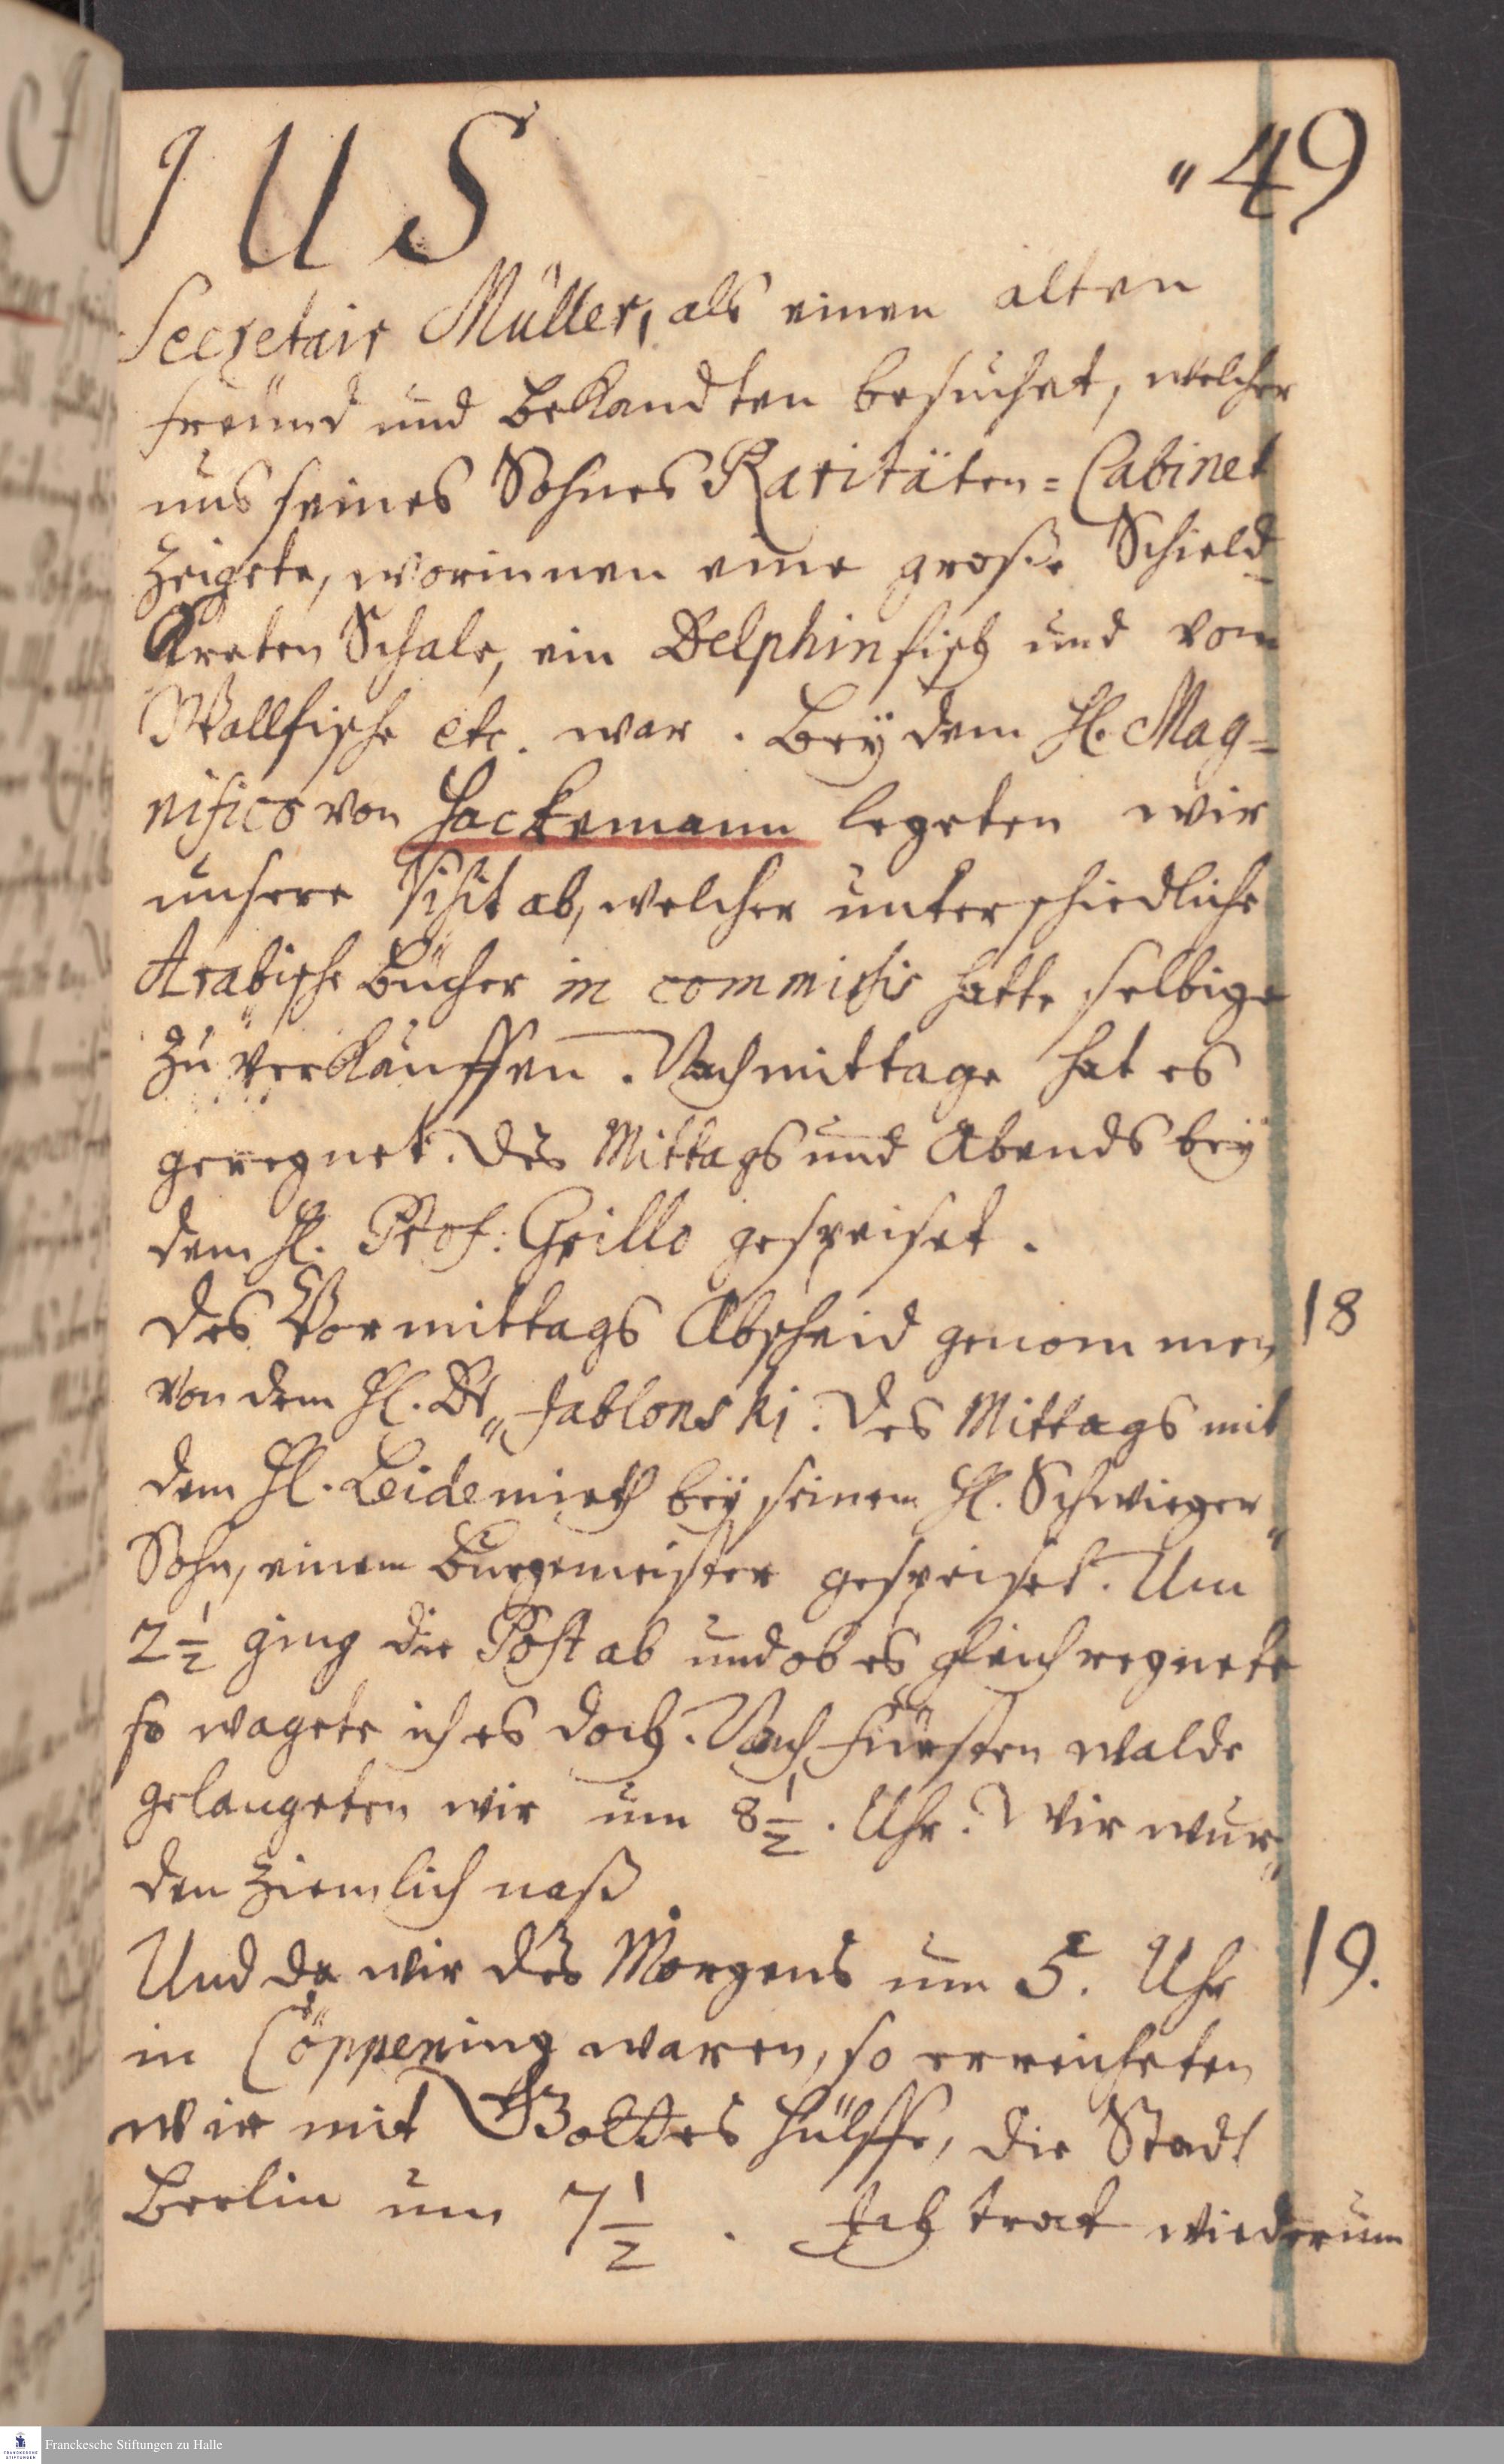 IUS "49
Secretair Müller, als einen alten
freund und bekandten besuchet, welcher
uns seines Sohnes Raritäten=Cabinet
zeigete, worinnen eine große Schield=
Kreten Schale, ein Delphinfisch und vom
Wallfische etc. war. Bey dem H. Mag=
nifico von Hackemann legeten wir
unsere Visit ab, welcher unterschiedliche
Arabische bücher in commissis hatte selbige
zu verkäuffen. Nachmittage hat es
geregnet. Des Mittags und Abends bey
dem H. Prof: Grillo gespeiset.
Des Vormittags Abscheid genommen 18
von dem H. Dr„ Jablonski. Des Mittags mit
dem H. Leidemirth bey seinem H. Schwieger„
Sohn, einem burgemeister gespeiset. Um
2 1/2 ging die Post ab und ob es gleich regnete
so wagete ich es doch. Nach fürstenwalde
gelangeten wir um 8 1/2. Uhr. Wir wur„
den ziemlich naß
Und da wir des Morgens um 5. Uhr 19.
in Cöppening waren, so erreicheten
wir mit Gottes hülffe, die Stadt
Berlin um 7 1/2. Ich trat wiederum
Franckesche Stiftungen zu Halle
FRANCKESCHE
STIFTUNGEN